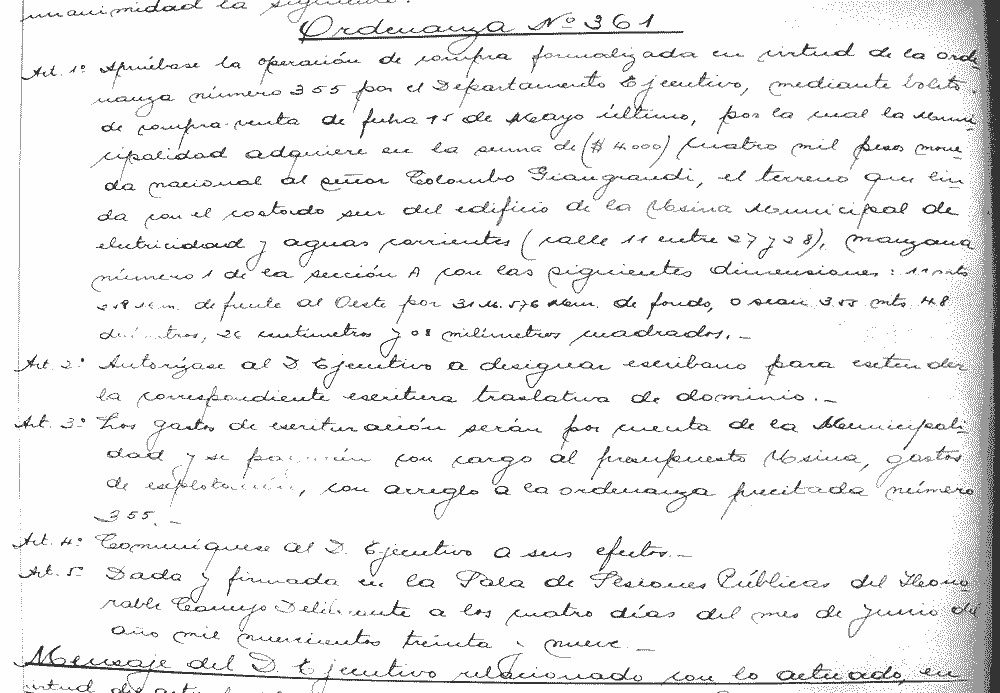 unanimidad la siguiente:
Ordenanza Nº 361
Art. 1º Apruébase la operación de compra formalizada en virtud de la orde
nanza número 355 por el Departamento Ejecutivo, mediante boleto
de compra-venta de fecha 15 de Mayo último, por la cual la Muni-
cipalidad adquiere en la suma de ($ 4.000) cuatro mil pesos mone-
da nacional al señor Colombo Giangrandi, el terreno que lin-
da con el costado sur del edificio de la Usina Municipal de
electricidad y aguas corrientes (calle 11 entre 27 y 28), manzana
número 1 de la sección A con las siguientes dimensiones: 11 mts
de frente al Oeste por 31 M. 576 de fondo, o sean 355 mts. 48
26 centímetros y 08 milímetros cuadrados.-
Art. 2º Autorízase al D. Ejecutivo a designar escribano para extender
la correspondiente escritura traslativa de dominio.-
Art. 3º Los gastos de escrituración serán por cuenta de la Municipali-
dad y se con cargo al presupuesto Usina, gastos
de explotación, con arreglo a la ordenanza precitada número
355.-
Art. 4º Comuníquese al D. Ejecutivo a sus efectos.-
Art. 5º Dada y firmada en la Sala de Sesiones Públicas del Hono-
rable Concejo Deliberante a los cuatro días del mes de Junio del
año mil novecientos treinta y nueve.-
Mensaje del D. Ejecutivo relacionado con lo actuado, en